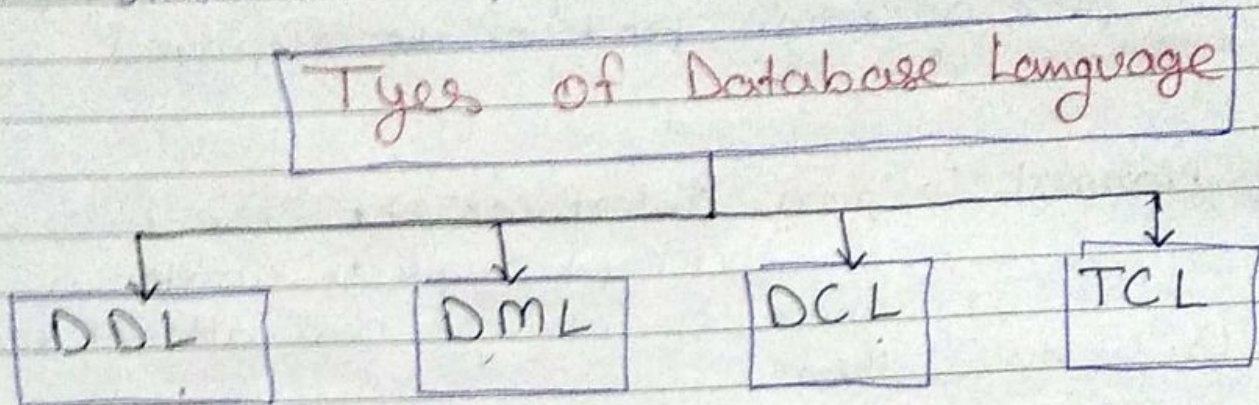 Tyes of Database Language
DDL DML DCL TCL